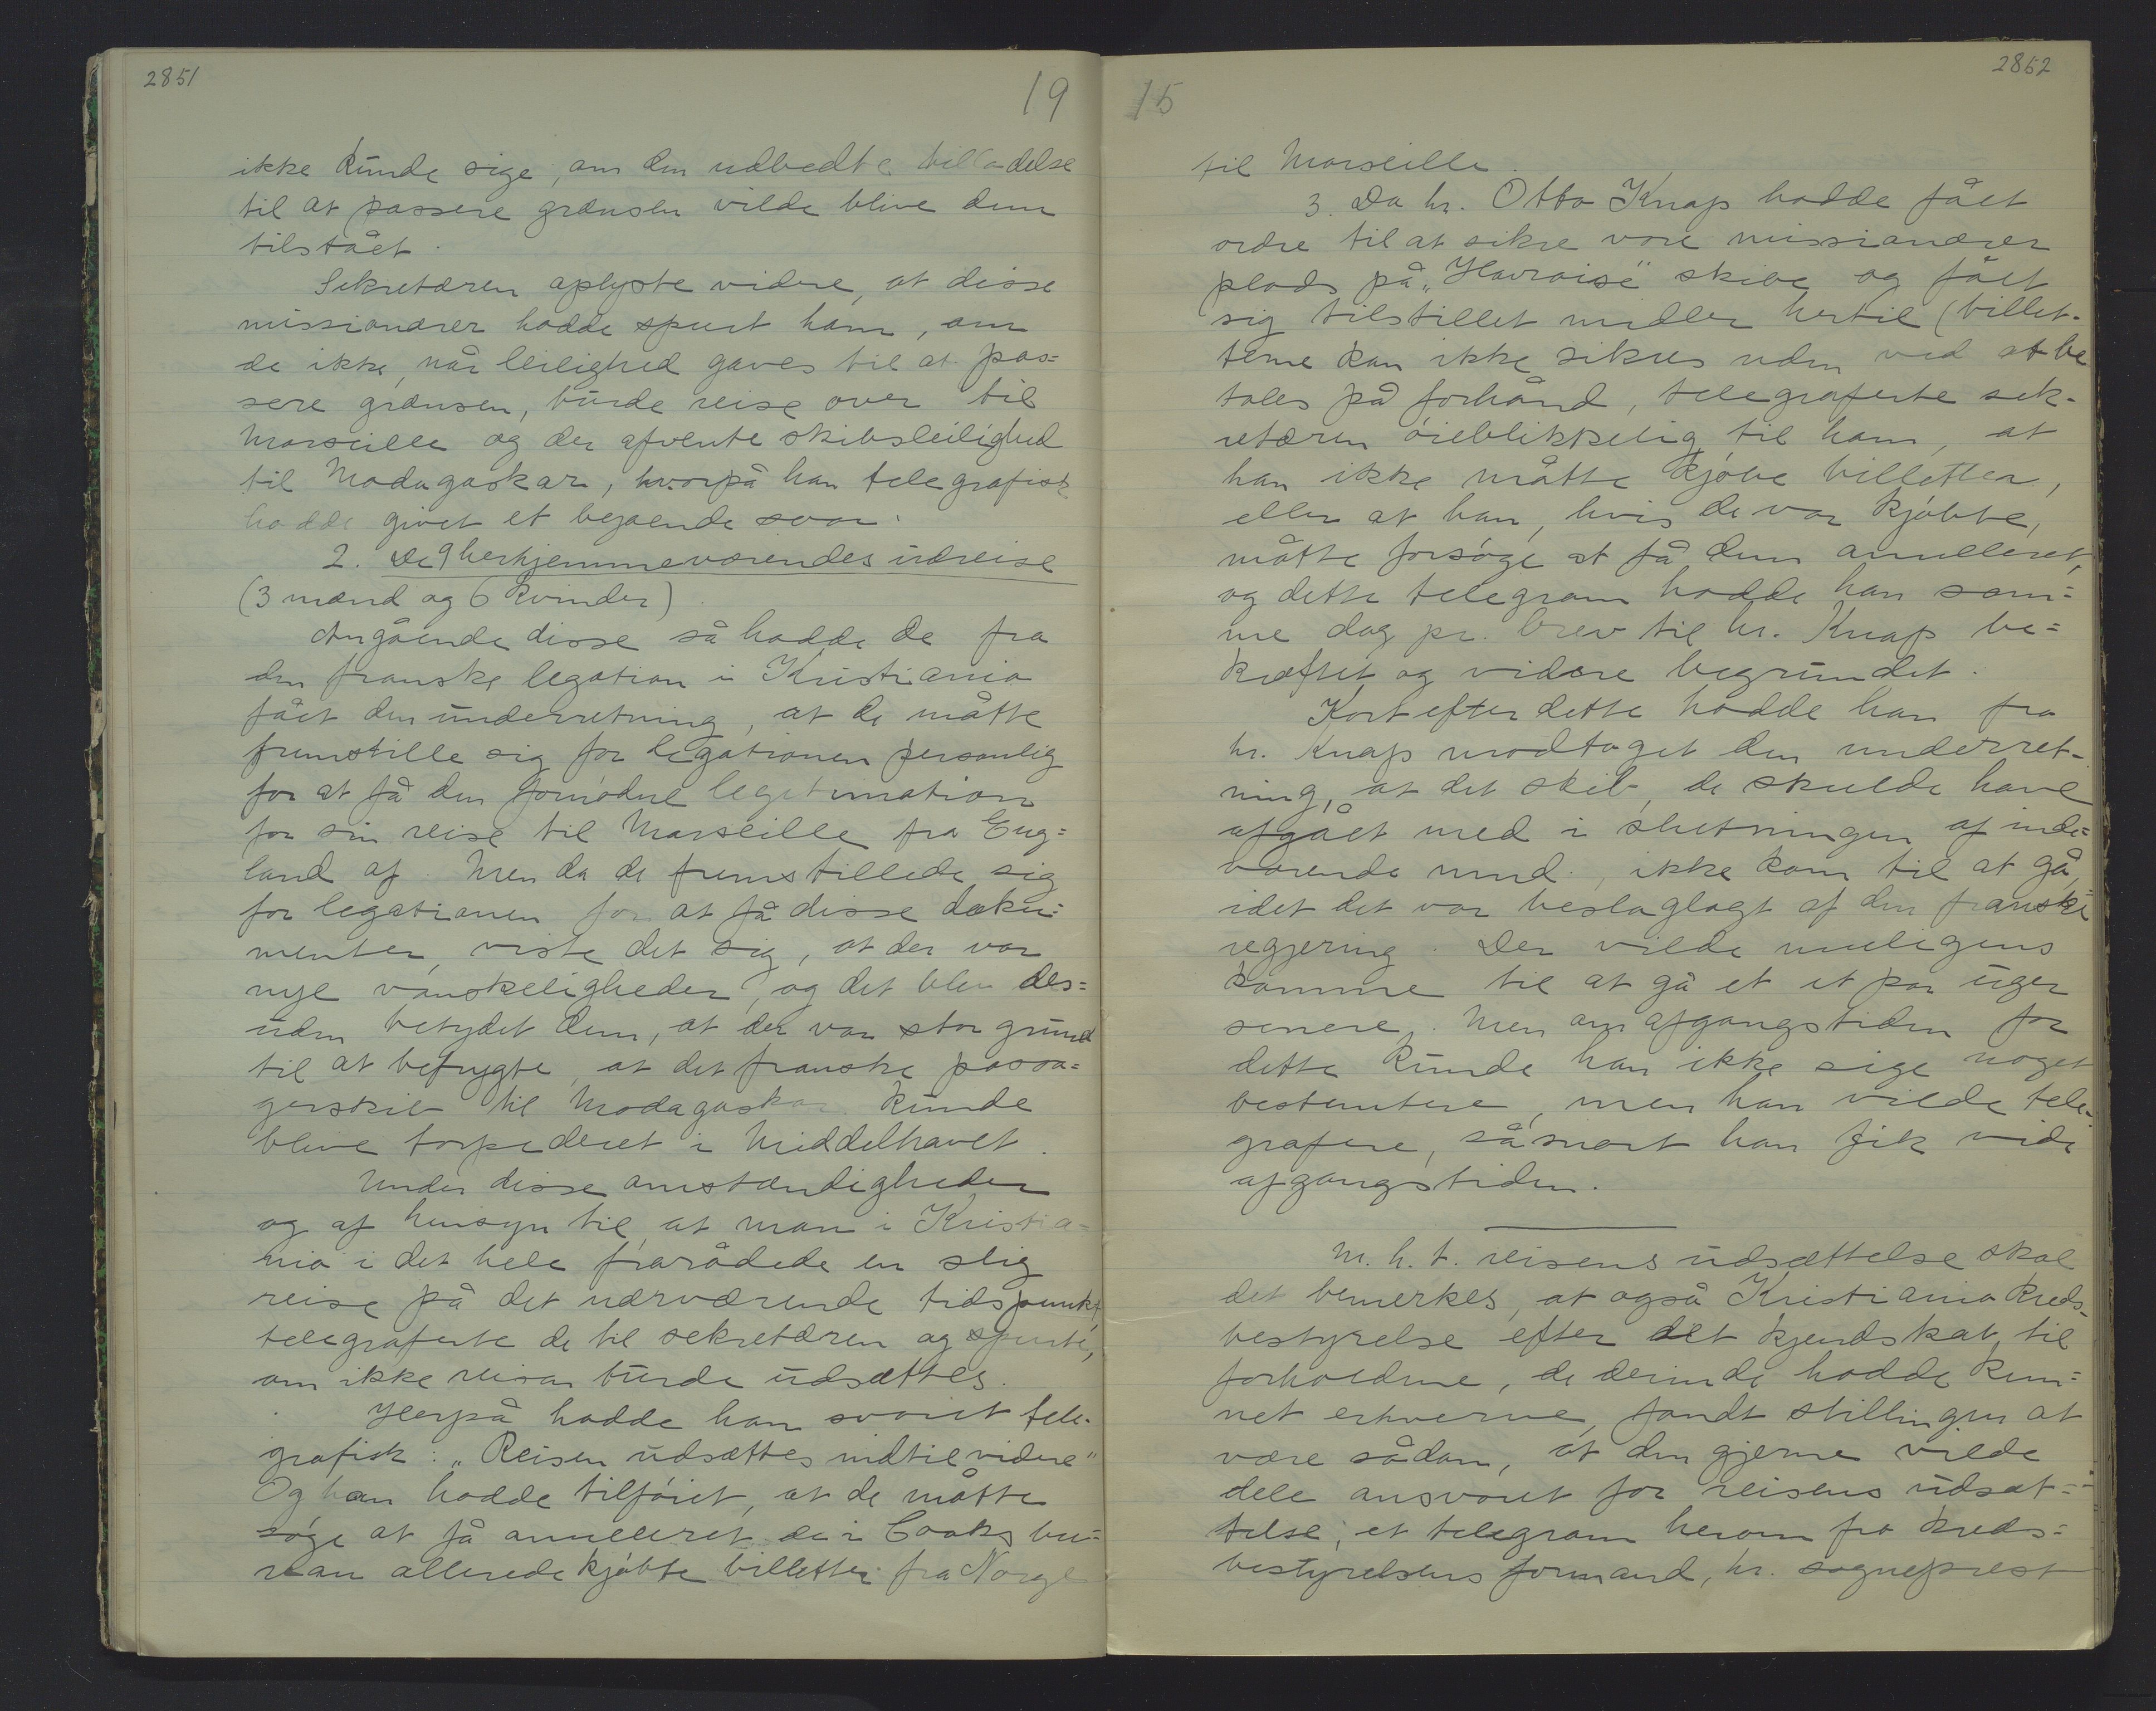 2851
19
ikke kunde sige, om den udbedte tilladelse
til at passere grænsen vilde blive dem
tilstået.
Sekretæren oplyste videre, at disse
missionærer hadde spurt ham, om
de ikke, når leilighed gaves til at pas=
sere grænsen, burde reise over til
Marseille og der afvente skibsleilighed
til Madagaskar, hvorpå han telegrafisk
hadde givet et bejaende svar.
2. De 9 herhjemmeværendes udreise
(3 mænd og 6 kvinder).
Angående disse så hadde de fra
den franske legation i Kristiania
fået den underretning, at de måtte
fremstille sig for legationen personlig
for at få den fornødne legitimation
for sin reise til Marseille fra Eng=
land af. Men da de fremstillede sig
for legationen for at få disse doku=
menter, viste det sig, at der var
nye vanskeligheder, og det blev des=
uden betydet dem, at der var stor grund
til at befrygte, at det franske passa=
gerskib til Madagaskar kunde
blive torpederet i Middelhavet.
Under disse omstændigheder
og af hensyn til, at man i Kristia=
nia i det hele frarådede en slig
reise på det nærværende tidspunkt,
telegraferte de til sekretæren og spurte,
om ikke reisen burde udsættes.
Herpå hadde han svaret tele-
grafisk: „Reisen udsættes indtil videre"
Og han hadde tilføiet, at de måtte
søge at få annulleret de i Cooks bu=
reau allerede kjøbte billetter fra Norge
15
2852
til Marseille.
3. Da hr. Otto Knap hadde fået
ordre til at sikre vore missionærer
plads på „Havraise" skibe og fået
sig tilstillet midler hertil (billet-
terne kan ikke sikres uden ved at be
tales på forhånd, telegraferte sek-
retæren øieblikkelig til ham, at
han ikke måtte kjøbe billetter,
eller at han, hvis de var kjøbte,
måtte forsøge at få dem annulleret,
og dette telegram hadde han sam=
me dag pr. brev til hr. Knap be=
kræftet og videre begrundet.
Kort efter dette hadde han fra
hr. Knap modtaget den underret-
ning, at det skib, de skulde have
afgået med i slutningen af inde=
værende mnd., ikke kom til at gå,
idet det var beslaglagt af den franske
regjering. Der vilde muligens
komme til at gå et et par uger
senere. Men om afgangstiden for
dette kunde han ikke sige noget
bestemtere, men han vilde tele-
grafere, såsnart han fik vide
afgangstiden.
M. h. t. reisens udsættelse skal
det bemerkes, at også Kristiania kreds-
bestyrelse efter det kjendskab til
forholdene, de derinde hadde kun=
net erhverve, fandt stillingen at
være sådan, at den gjerne vilde
dele ansvaret for reisens udsæt=
telse; et telegram herom fra kreds=
bestyrelsens formand, hr. sogneprest